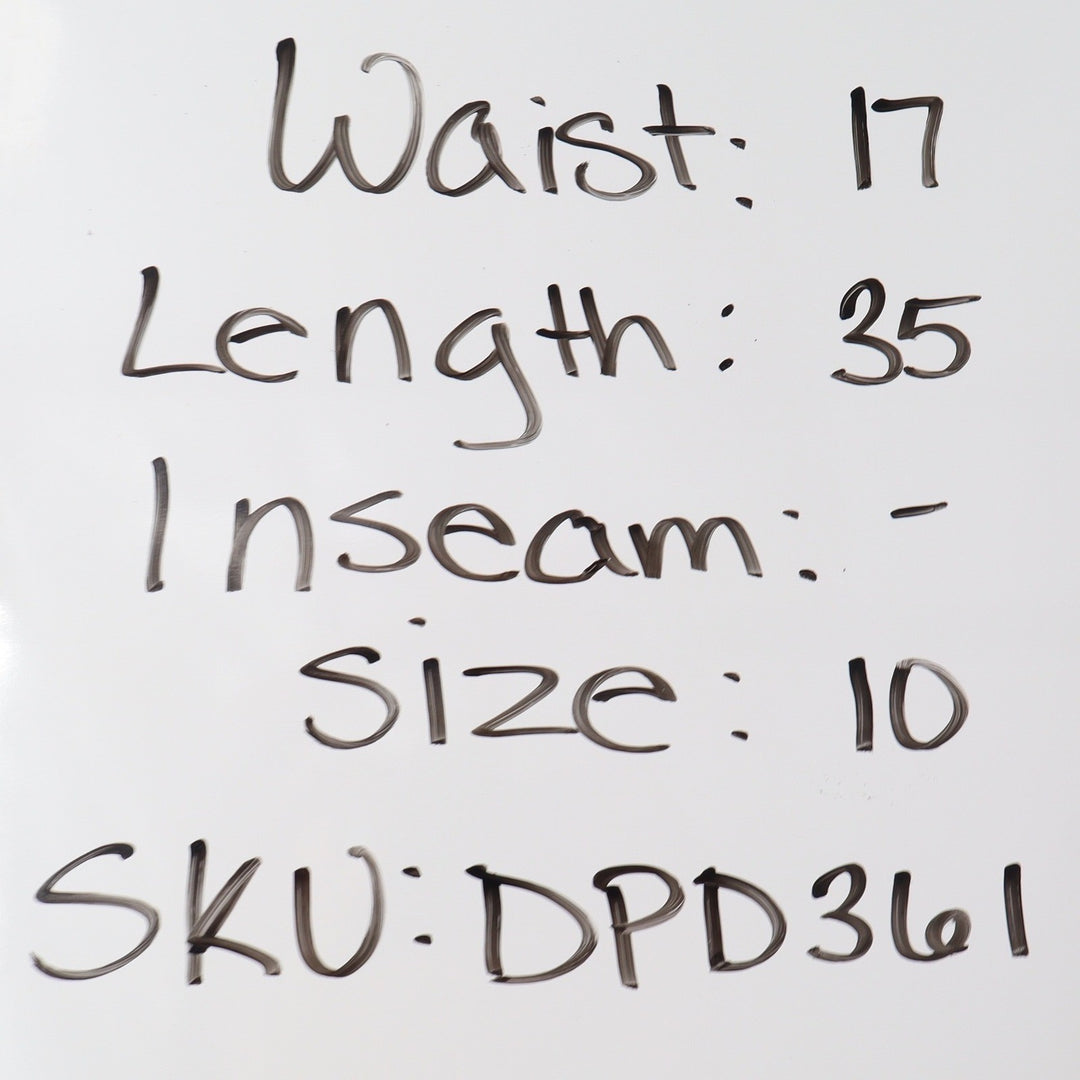 Waist: 17
Length: 35
Inseam: -
Size: 10
SKU: DPD361